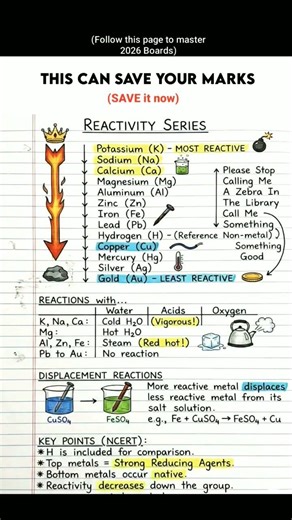 (Follow this page to master
2026 Boards)
THIS CAN SAVE YOUR MARKS
(SAVE it now)
REACTIVITY SERIES
Potassium (K) – MOST REACTIVE
Sodium (Na)
Calcium (Ca)
Magnesium (Mg)
Aluminum (Al)
Zinc (Zn)
Iron (Fe)
Lead (Pb)
Hydrogen (H) – (Reference Non-metal)
Copper (Cu)
Mercury (Hg)
Silver (Ag)
Gold (Au) – LEAST REACTIVE
Please Stop
Calling Me
A Zebra In
The Library
Call Me
Something
Something
Good
REACTIONS with...
Water Acids Oxygen
K, Na, Ca: Cold H₂O (Vigorous!)
Mg: Hot H₂O
Al, Zn, Fe: Steam (Red hot!)
Pb to Au: No reaction
DISPLACEMENT REACTIONS
CuSO₄ FeSO₄
More reactive metal displaces
less reactive metal from its
salt solution.
e.g., Fe + CuSO₄ → FeSO₄ + Cu
KEY POINTS (NCERT):
* H is included for comparison.
* Top metals = Strong Reducing Agents.
* Bottom metals occur native.
* Reactivity decreases down the group.